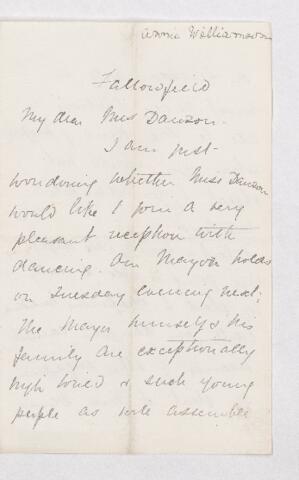 Annie Williamson
Fallowfield
My dear Miss Dawson.
I am just
wondering whether Miss Dawson
would like to join a very
pleasant reception with
dancing. Our Mayor holds
on Tuesday evening next;
The Mayor himself & his
family are exceptionally
high & such young
people as will assemble